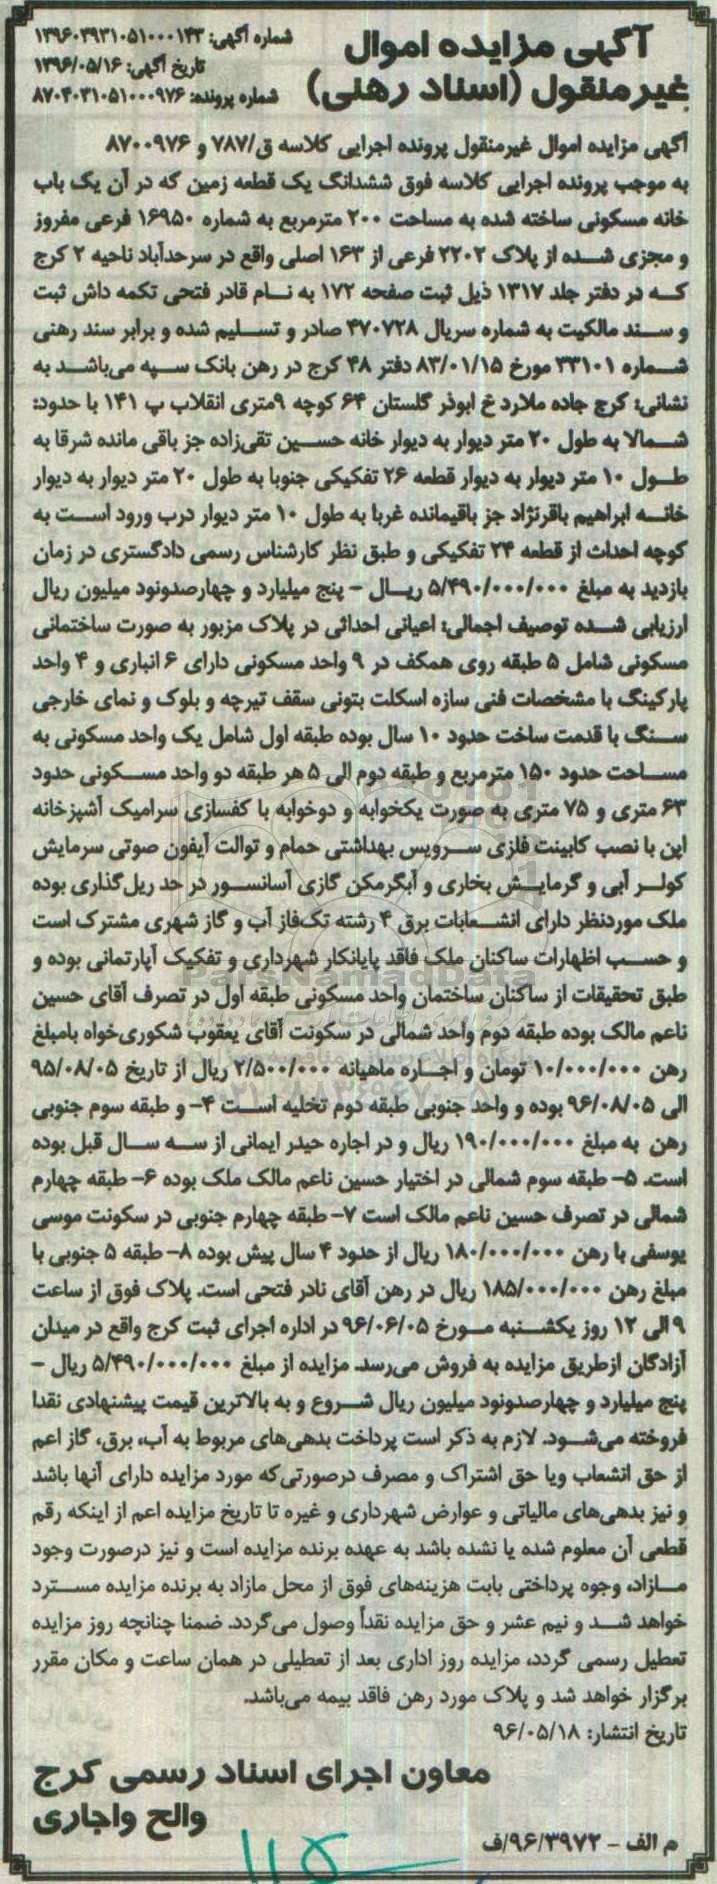 آگهی مزایده اموال
غیرمنقول (اسناد رهنی)
شماره آگهی: ۱۳۹۶۰۳۹۳۱۰۵۱۰۰۰۱۴۳
تاریخ آگهی: ۱۳۹۶/۰۵/۱۶
شماره پرونده: ۸۷۰۴۰۳۱۰۵۱۰۰۰۹۷۶
آگهی مزایده اموال غیرمنقول پرونده اجرایی کلاسه ق/۷۸۷ و ۸۷۰۰۹۷۶
به موجب پرونده اجرایی کلاسه فوق ششدانگ یک قطعه زمین که در آن یک باب
خانه مسکونی ساخته شده به مساحت ۲۰۰ مترمربع به شماره ۱۶۹۵۰ فرعی مفروز
و مجزی شده از پلاک ۲۲۰۲ فرعی از ۱۶۳ اصلی واقع در سرحدآباد ناحیه ۲ کرج
که در دفتر جلد ۱۳۱۷ ذیل ثبت صفحه ۱۷۲ به نام قادر فتحی تکمه داش ثبت
و سند مالکیت به شماره سریال ۴۷۰۷۲۸ صادر و تسلیم شده و برابر سند رهنی
شماره ۳۳۱۰۱ مورخ ۸۳/۰۱/۱۵ دفتر ۴۸ کرج در رهن بانک سپه می‌باشد به
نشانی: کرج جاده ملارد خ ابوذر گلستان ۶۴ کوچه ۹متری انقلاب پ ۱۴۱ با حدود:
شمالا به طول ۲۰ متر دیوار به دیوار خانه حسین تقی‌زاده جز باقی مانده شرقا به
طول ۱۰ متر دیوار به دیوار قطعه ۲۶ تفکیکی جنوبا به طول ۲۰ متر دیوار به دیوار
خانه ابراهیم باقرنژاد جز باقیمانده غربا به طول ۱۰ متر دیوار درب ورود است به
کوچه احداث از قطعه ۲۴ تفکیکی و طبق نظر کارشناس رسمی دادگستری در زمان
بازدید به مبلغ ۵/۴۹۰/۰۰۰/۰۰۰ ریال - پنج میلیارد و چهارصدونود میلیون ریال
ارزیابی شده توصیف اجمالی: اعیانی احداثی در پلاک مزبور به صورت ساختمانی
مسکونی شامل ۵ طبقه روی همکف در ۹ واحد مسکونی دارای ۶ انباری و ۴ واحد
پارکینگ با مشخصات فنی سازه اسکلت بتونی سقف تیرچه و بلوک و نمای خارجی
سنگ با قدمت ساخت حدود ۱۰ سال بوده طبقه اول شامل یک واحد مسکونی به
مساحت حدود ۱۵۰ مترمربع و طبقه دوم الی ۵ هر طبقه دو واحد مسکونی حدود
۶۳ متری و ۷۵ متری به صورت یکخوابه و دوخوابه با کفسازی سرامیک آشپزخانه
اپن با نصب کابینت فلزی سرویس بهداشتی حمام و توالت آیفون صوتی سرمایش
کولر آبی و گرمایش بخاری و آبگرمکن گازی آسانسور در حد ریل‌گذاری بوده
ملک موردنظر دارای انشعابات برق ۴ رشته تک‌فاز آب و گاز شهری مشترک است
و حسب اظهارات ساکنان ملک فاقد پایانکار شهرداری و تفکیک آپارتمانی بوده و
طبق تحقیقات از ساکنان ساختمان واحد مسکونی طبقه اول در تصرف آقای حسین
ناعم مالک بوده طبقه دوم واحد شمالی در سکونت آقای یعقوب شکوری‌خواه بامبلغ
رهن ۱۰/۰۰۰/۰۰۰ تومان و اجاره ماهیانه ۲/۵۰۰/۰۰۰ ریال از تاریخ ۹۵/۰۸/۰۵
الی ۹۶/۰۸/۰۵ بوده و واحد جنوبی طبقه دوم تخلیه است ۴- و طبقه سوم جنوبی
رهن به مبلغ ۱۹۰/۰۰۰/۰۰۰ ریال و در اجاره حیدر ایمانی از سه سال قبل بوده
است. ۵- طبقه سوم شمالی در اختیار حسین ناعم مالک ملک بوده ۶- طبقه چهارم
شمالی در تصرف حسین ناعم مالک است ۷- طبقه چهارم جنوبی در سکونت موسی
یوسفی با رهن ۱۸۰/۰۰۰/۰۰۰ ریال از حدود ۴ سال پیش بوده ۸- طبقه ۵ جنوبی با
مبلغ رهن ۱۸۵/۰۰۰/۰۰۰ ریال در رهن آقای نادر فتحی است. پلاک فوق از ساعت
۹ الی ۱۲ روز یکشنبه مورخ ۹۶/۰۶/۰۵ در اداره اجرای ثبت کرج واقع در میدان
آزادگان ازطریق مزایده به فروش می‌رسد. مزایده از مبلغ ۵/۴۹۰/۰۰۰/۰۰۰ ریال -
پنج میلیارد و چهارصدونود میلیون ریال شروع و به بالاترین قیمت پیشنهادی نقدا
فروخته می‌شود. لازم به ذکر است پرداخت بدهی‌های مربوط به آب، برق، گاز اعم
از حق انشعاب ویا حق اشتراک و مصرف درصورتی‌که مورد مزایده دارای آنها باشد
و نیز بدهی‌های مالیاتی و عوارض شهرداری و غیره تا تاریخ مزایده اعم از اینکه رقم
قطعی آن معلوم شده یا نشده باشد به عهده برنده مزایده است و نیز درصورت وجود
مازاد، وجوه پرداختی بابت هزینه‌های فوق از محل مازاد به برنده مزایده مسترد
خواهد شد و نیم عشر و حق مزایده نقداً وصول می‌گردد. ضمنا چنانچه روز مزایده
تعطیل رسمی گردد، مزایده روز اداری بعد از تعطیلی در همان ساعت و مکان مقرر
برگزار خواهد شد و پلاک مورد رهن فاقد بیمه می‌باشد.
تاریخ انتشار: ۹۶/۰۵/۱۸
معاون اجرای اسناد رسمی کرج
والح واجاری
م الف - ۹۶/۳۹۷۲/ف
۱۱۵